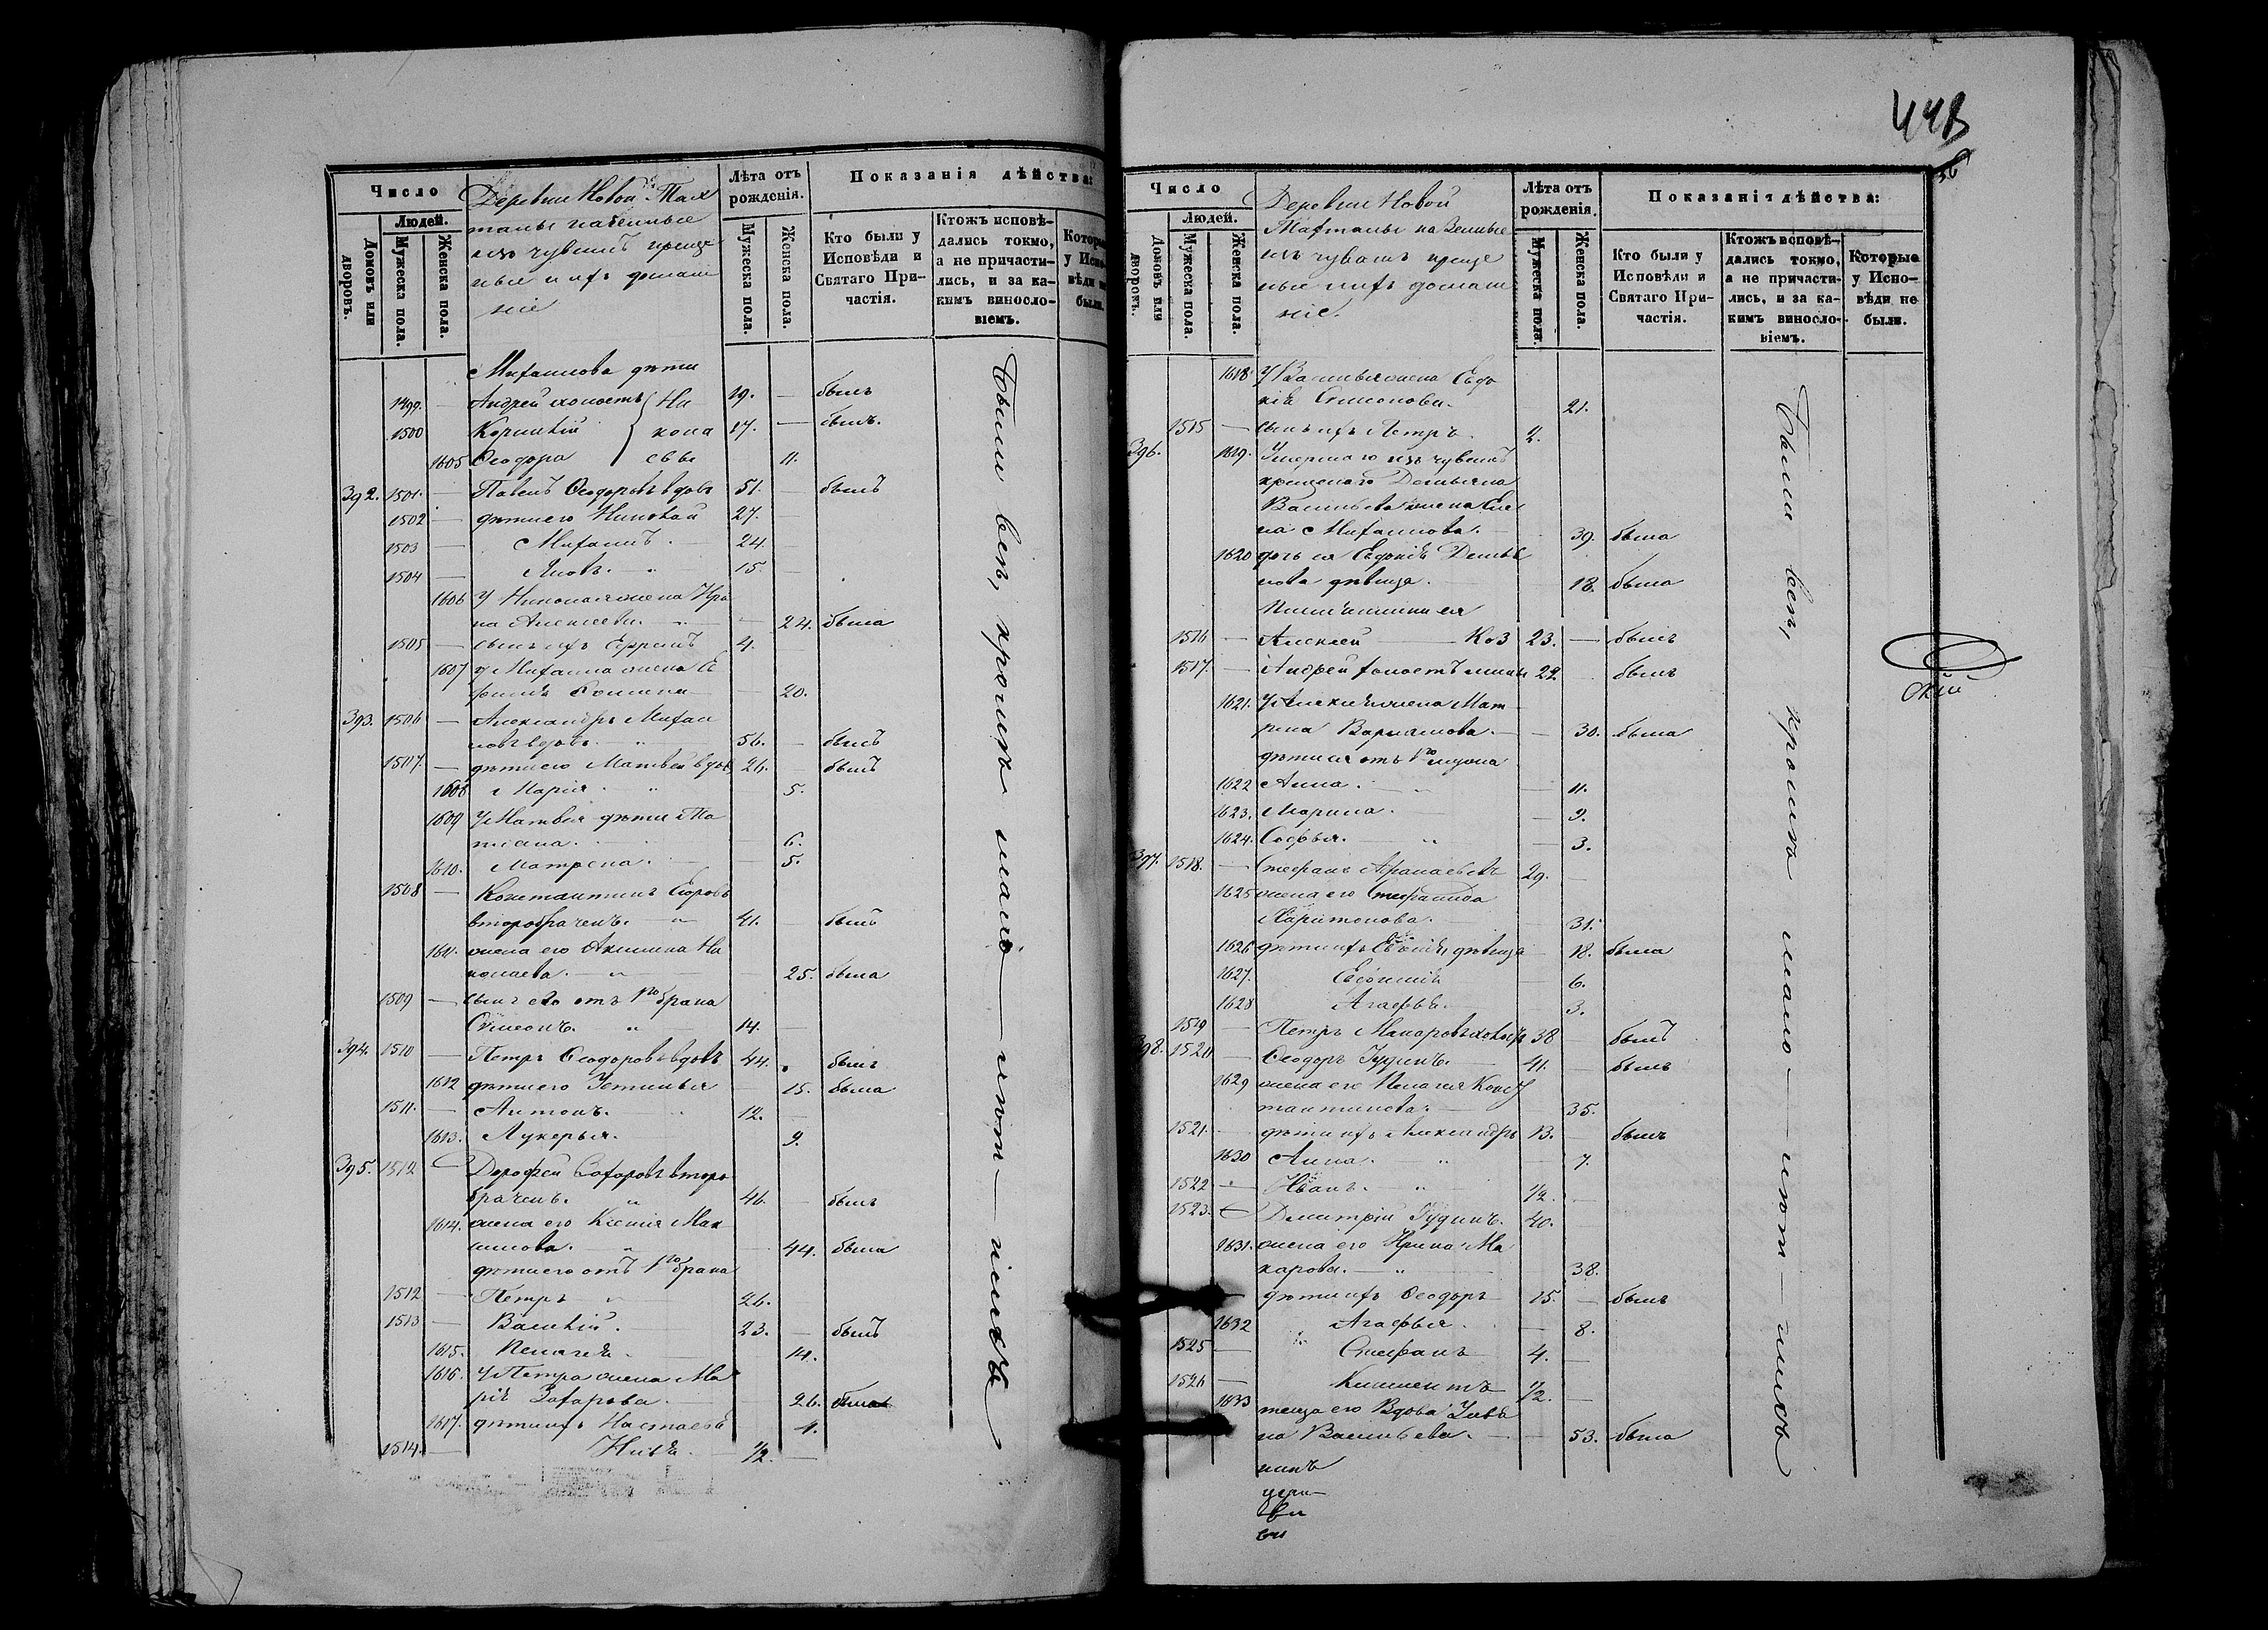 Число
Людей.
Домовъ или дворовъ.
Мужеска пола.
Женска пола.
Деревни Новой
крещеные и ихъ домаш
ніе
Лѣта отъ рожденія.
Мужеска пола.
Женска пола.
Показанія дѣйства:
Кто были у Исповѣди и Святаго Причастія.
Ктожъ исповѣдались токмо, а не причастились, и за какимъ винословіемъ.
Михаилова дѣти
1499. — Андрей холостъ 19. — былъ
1500 Корнилій 17. — былъ.
1605 Ѳеодора 11.
392. 1501. — Павелъ Ѳеодоровъ вдовъ 51. — былъ
1502 — дѣти его Николай 27.
1503 — Михаилъ. 24. —
1504 — Яковъ. 15. —
1606 У Николая жена Ири
на Алексеева. — 24. была
1505 — сынъ ихъ Ефремъ 4. —
1607 У Михаила жена
— 20.
393. 1506 — Александръ Михаи
ловъ вдовъ. 56. — былъ
1507. — дѣти его Матвей вдов 26. — былъ
1608 Марія. 5.
1609 У Матвея дѣти Та
тіана. 6.
1610. Матрена. — 5.
1508 — Константинъ Егоровъ
второбраченъ. 41. былъ
1611. жена его Акилина Ни
колаева. 25. была
1509 — сынъ его отъ 1го брака
Симеонъ. 14. —
394. 1510 — Петръ Ѳеодоровъ вдовъ 44. былъ
1612 дѣти его Устинья — 15. была
1511. — Антонъ. 12. —
1613. Лукерья. 9.
395. 1512 Дорофей Захаровъ второ
браченъ. 46. — былъ
1614. жена его Ксенія Мак
симова. 44. была
дѣти его отъ 1го брака
1512 — Петръ 26.
1513 — Василій. 23. — былъ
1615. Пелагія 14.
1616. У Петра жена Ма
рія Захарова. 26. была
1617. дѣти ихъ Настасья 4.
1514. — Илья. 1/2. —
Были всѣ, кромѣ мало — лѣт — нихъ
44В
Число
Людей.
Домовъ или дворовъ.
Мужеска пола.
Женска пола.
Деревни Новой
изъ чувашъ креще
ные и ихъ домаш
ніе.
Лѣта отъ рожденія.
Мужеска пола.
Женска пола.
Показанія дѣйства:
Кто были у Исповѣди и Святаго Причастія.
Ктожъ исповѣдались токмо, а не причастились, и за какимъ винословіемъ.
Которые у Исповѣди не были.
1618 У Василья жена Евдо
кія Симонова. 21.
1515 — сынъ ихъ Петръ 2.
396. 1619. Умершаго изъ чувашъ
крещенаго Демьяна
Васильева жена Еле
на Михаилова. 39. была
1620 дочь ея Евдокія Демья
нова дѣвица. 18. была
1516 — Алексей 23. — былъ
1517. — Андрей холостъ 22. былъ
1621. У Алексея жена Мат
рина Варламова. — 30. была
дѣти ея отъ 1го мужа
1622 Анна. — 11.
1623. Марина. — 9.
1624. Софья. — 3.
397. 1518. — Стефанъ Афанасьевъ 29. —
1625 жена его Степанида
Харитонова. 31.
1626 дѣти ихъ дѣвица — 18. была
1627. Евдокія — 6.
1628 Агафья. — 3.
1519 — Петръ Макаровъ холостъ 38 — былъ
398. 1520 — Ѳеодоръ Гудинъ. 41. — былъ
1629 жена его Пелагея Конс
тантинова. 35.
1521. — дѣти ихъ Александръ 13. — былъ
1630 Анна. — 7.
1522 — Иванъ. 1/2. —
1523. Димитрій Гудинъ. 40. —
1631. жена его Ирина Ма
карова. 38.
дѣти ихъ Ѳеодоръ 15. — былъ
1632 Агафья. — 8.
1525 — Стефанъ 4. —
1526 — Климентъ 1/2. —
1633 теща его Вдова Улья
на Васильева. — 53. была
Были всѣ, кромѣ мало — лѣт — нихъ